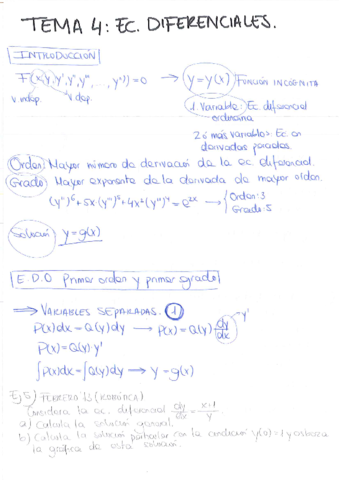 TEMA 4: EC. DIFERENCIALES.
INTRODUCCIÓN
F(x,y,y',y'', ..., yⁿ)) = 0 → y = y(x) FUNCIÓN INCÓGNITA
V indep. V dep.
1 Variable: Ec diferencial
ordinaria
2 ó más variables: Ec en
derivadas parciales.
Orden: Mayor número de derivación de la ec diferencial.
Grado: Mayor exponente de la derivada de mayor orden.
Orden: 3
Grado: 5
Solución y = g(x)
E.D.O Primer orden y primer grado
⇒ VARIABLES SEPARADAS. ①
P(x)dx = Q(y)dy → P(x) = Q(y) dy/dx → y'
P(x) = Q(y) y'
∫P(x)dx = ∫Q(y)dy → y = g(x)
Considera la ec. diferencial dy/dx = x+1/y
a) Calcula la solución general.
b) Calcula la solución particular con la condición y(0)=1 y esboza
la gráfica de esta solución.